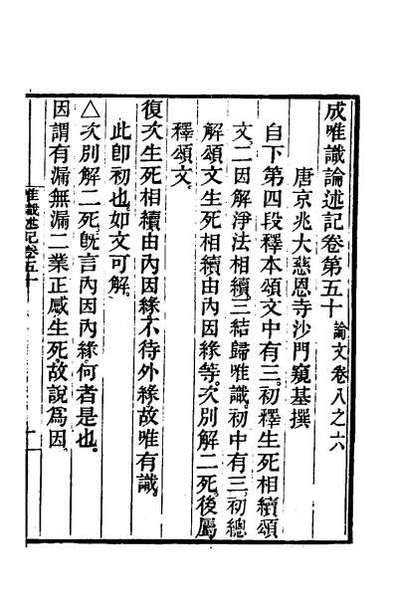 成唯識論述記卷第五十 論文卷八之六
唐京兆大慈恩寺沙門窺基撰
自下第四段釋本頌文中有三初釋生死相續頌
文二因解淨法相續三結歸唯識初中有三初總
解頌文生死相續由內因緣等次別解二死後屬
釋頌文
復次生死相續由內因緣不待外緣故唯有識
此卽初也如文可解
△次別解二死旣言內因內緣何者是也
因謂有漏無漏二業正感生死故說爲因
唯識述記卷五十